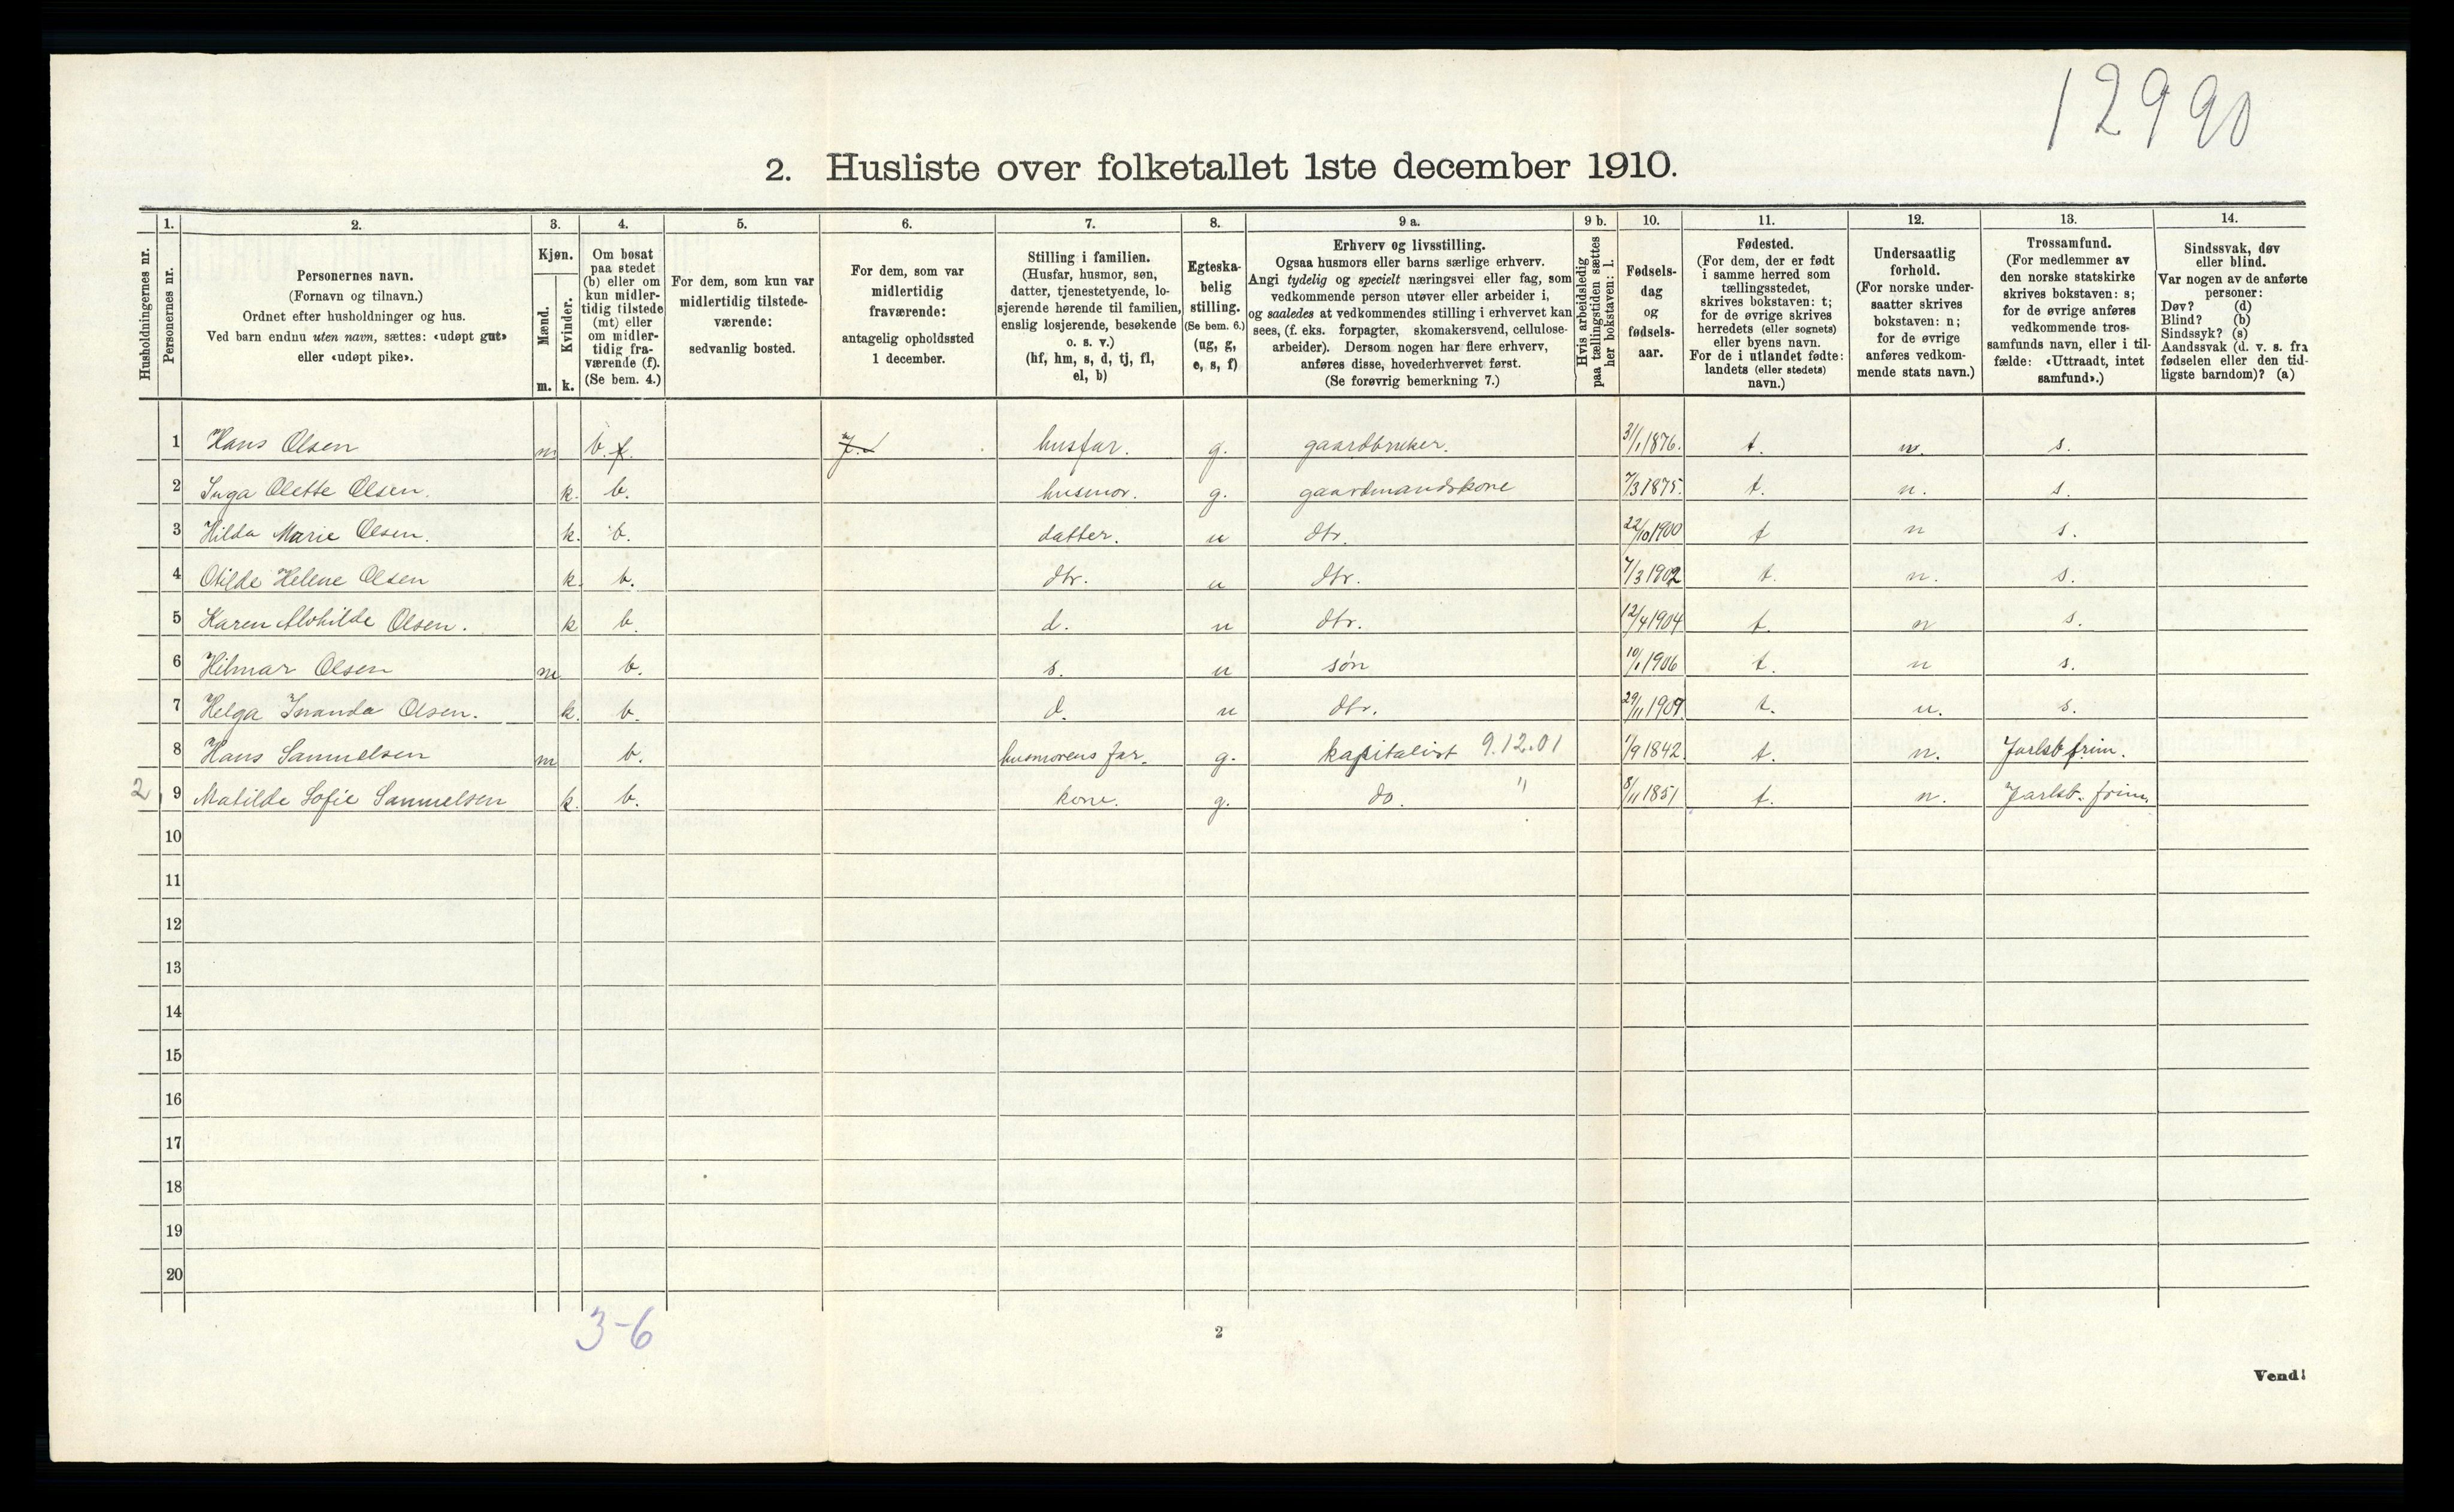 12990
2. Husliste over folketallet 1ste december 1910.
Husholdningernes nr.
1. Personernes nr.
2. Personernes navn.
(Fornavn og tilnavn.)
Ordnet efter husholdninger og hus.
Ved barn endnu uten navn, sættes: «udøpt gut»
eller «udøpt pike».
3. Kjøn.
Mænd. m.
Kvinder. k.
4. Om bosat
paa stedet
(b) eller om
kun midler-
tidig tilstede
(mt) eller
om midler-
tidig fra-
værende (f).
(Se bem. 4.)
5. For dem, som kun var
midlertidig tilstede-
værende:
sedvanlig bosted.
6. For dem, som var
midlertidig
fraværende:
antagelig opholdssted
1 december.
7. Stilling i familien.
(Husfar, husmor, søn,
datter, tjenestetyende, lo-
sjerende hørende til familien,
enslig losjerende, besøkende
o. s. v.)
(hf, hm, s, d, tj, fl,
el, b)
8. Egteska-
belig
stilling.
(Se bem. 6.)
(ug, g,
e, s, f)
9 a. Erhverv og livsstilling.
Ogsaa husmors eller barns særlige erhverv.
Angi tydelig og specielt næringsvei eller fag, som
vedkommende person utøver eller arbeider i,
og saaledes at vedkommendes stilling i erhvervet kan
sees, (f. eks. forpagter, skomakersvend, cellulose-
arbeider). Dersom nogen har flere erhverv,
anføres disse, hovederhvervet først.
(Se forøvrig bemerkning 7.)
9 b. Hvis arbeidsledig
paa tællingstiden sættes
her bokstaven: l.
10. Fødsels-
dag
og
fødsels-
aar.
11. Fødested.
(For dem, der er født
i samme herred som
tællingsstedet,
skrives bokstaven: t;
for de øvrige skrives
herredets (eller sognets)
eller byens navn.
For de i utlandet fødte:
landets (eller stedets)
navn.)
12. Undersaatlig
forhold.
(For norske under-
saatter skrives
bokstaven: n;
for de øvrige
anføres vedkom-
mende stats navn.)
13. Trossamfund.
(For medlemmer av
den norske statskirke
skrives bokstaven: s;
for de øvrige anføres
vedkommende tros-
samfunds navn, eller i til-
fælde: «Uttraadt, intet
samfund».)
14. Sindssvak, døv
eller blind.
Var nogen av de anførte
personer:
Døv? (d)
Blind? (b)
Sindssyk? (s)
Aandssvak (d. v. s. fra
fødselen eller den tid-
ligste barndom)? (a)
1 Hans Olsen m b. f. husfar. g. gaardbruker. 31/1 1876. t. n. s.
2 Inga Olette Olsen. k. b. husmor. g. gaardmandskone 7/3 1875. t. n. s.
3 Hilda Marie Olsen. k. b. datter. u dtr. 22/10 1900 t n s.
4 Otilde Helene Olsen k. b. dtr. u dtr. 7/3 1902 t. n. s.
5 Karen Alvhilde Olsen. k b. d. u dtr. 12/4 1904 t. n s.
6 Hilmar Olsen m b. s. u søn 10/1 1906 t. n s.
7 Helga Iranda Olsen. k. b. d. u dtr. 29/11 1909 t. n. s.
8 Hans Samuelsen m b. husmorens far. g. kapitalist 9.12.01 1/9 1842. t. n. Jarlsb frim.
2 9 Matilde Sofie Samuelsen k. b. kone. g. do. " 8/11 1851 t. n. Jarlsb. frim.
10
11
12
13
14
15
16
17
18
19
20
3-6
2
Vend!